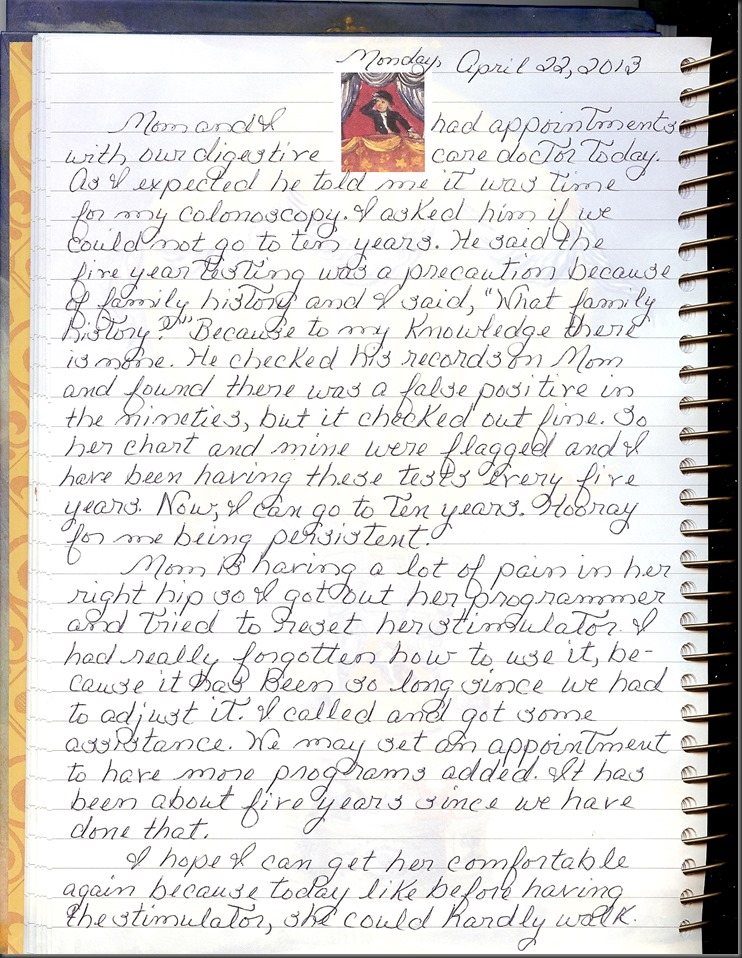 Monday, April 22, 2013
Mom and I had appointments
with our digestive care doctor today.
As I expected he told me it was time
for my colonoscopy. I asked him if we
could not go to ten years. He said the
five year testing was a precaution because
of family history and I said, "What family
history?" Because to my knowledge there
is none. He checked his records on Mom
and found there was a false positive in
the nineties, but it checked out fine. So
her chart and mine were flagged and I
have been having these tests every five
years. Now, I can go to ten years. Hooray
for me being persistent.
Mom is having a lot of pain in her
right hip so I got out her programmer
and tried to reset her stimulator. I
had really forgotten how to use it, be-
cause it has been so long since we had
to adjust it. I called and got some
assistance. We may set an appointment
to have more programs added. It has
been about five years since we have
done that.
I hope I can get her comfortable
again because today like before having
the stimulator, she could hardly walk.